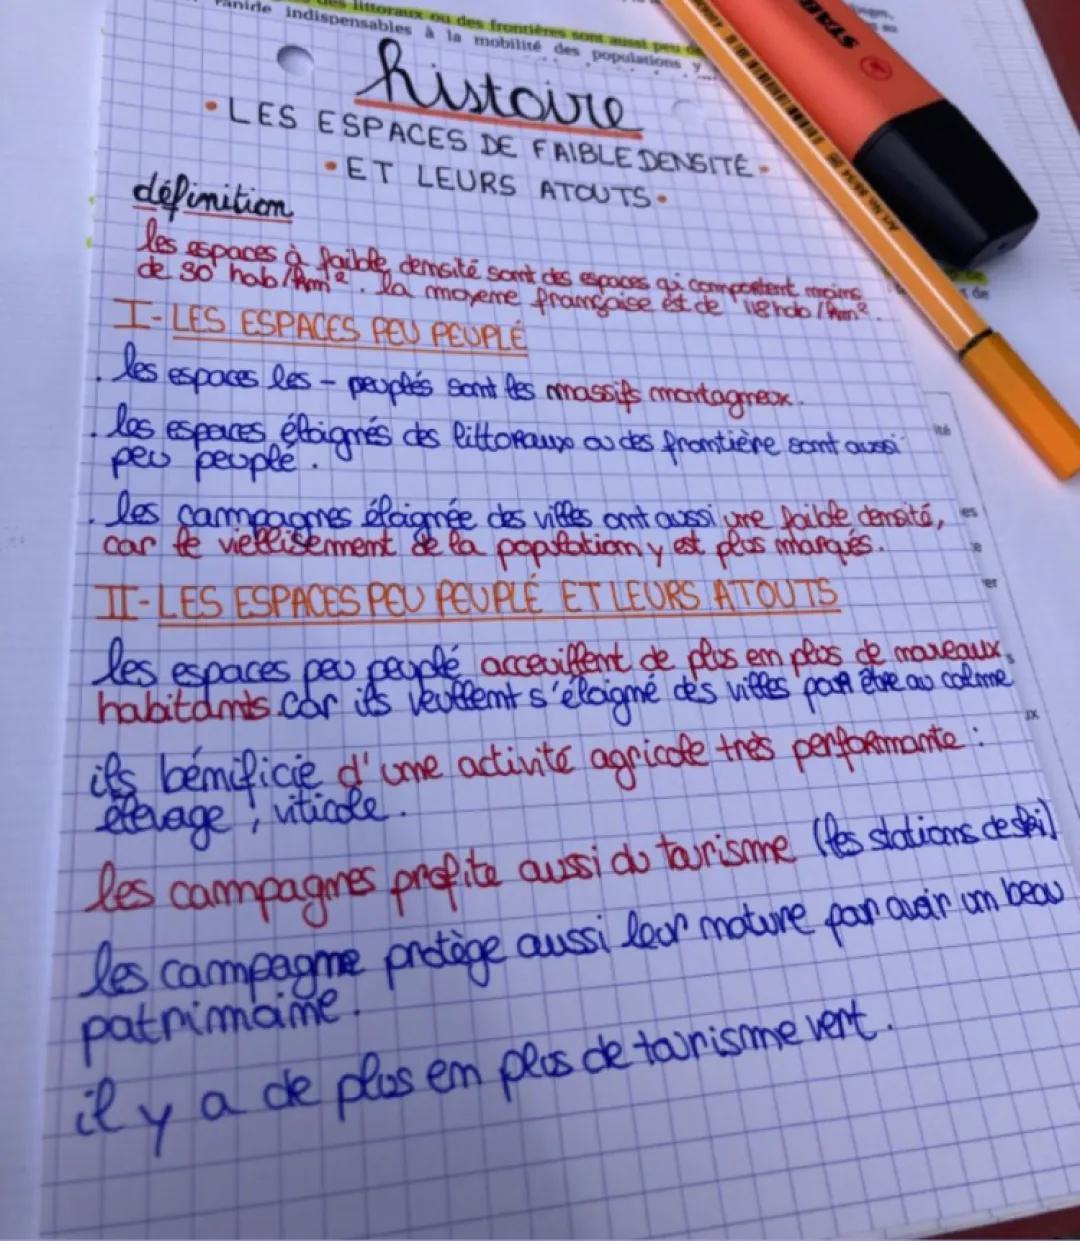 des littoraux ou des frontières sont aussi peu
indispensables à la mobilité des populations y
histoire
• LES ESPACES DE FAIBLE DENSITÉ •
• ET LEURS ATOUTS •
définition
les espaces à faible densité sont des espaces qi comportent moins
de 30 hab/km². la moyenne française est de 118 hab/km².
I-LES ESPACES PEU PEUPLÉ
. les espaces les - peuplés sont les massifs montagneux.
. les espaces éloignés des littoraux ou des frontière sont aussi
peu peuplé.
. les campagnes éloignée des villes ont aussi une faible densité,
car le viellisement de la population y est plus marqués.
II-LES ESPACES PEU PEUPLÉ ET LEURS ATOUTS
les espaces peu peuplé acceuillent de plus en plus de nouveaux
habitants car ils veullent s'éloigné des villes pour être au calme
ils bénificie d'une activité agricole très performante :
élevage, viticole.
les campagnes profite aussi du tourisme (les stations de ski)
les campagne protège aussi leur nature par avoir un beau
patrimoine.
il y a de plus en plus de tourisme vert.
STABI